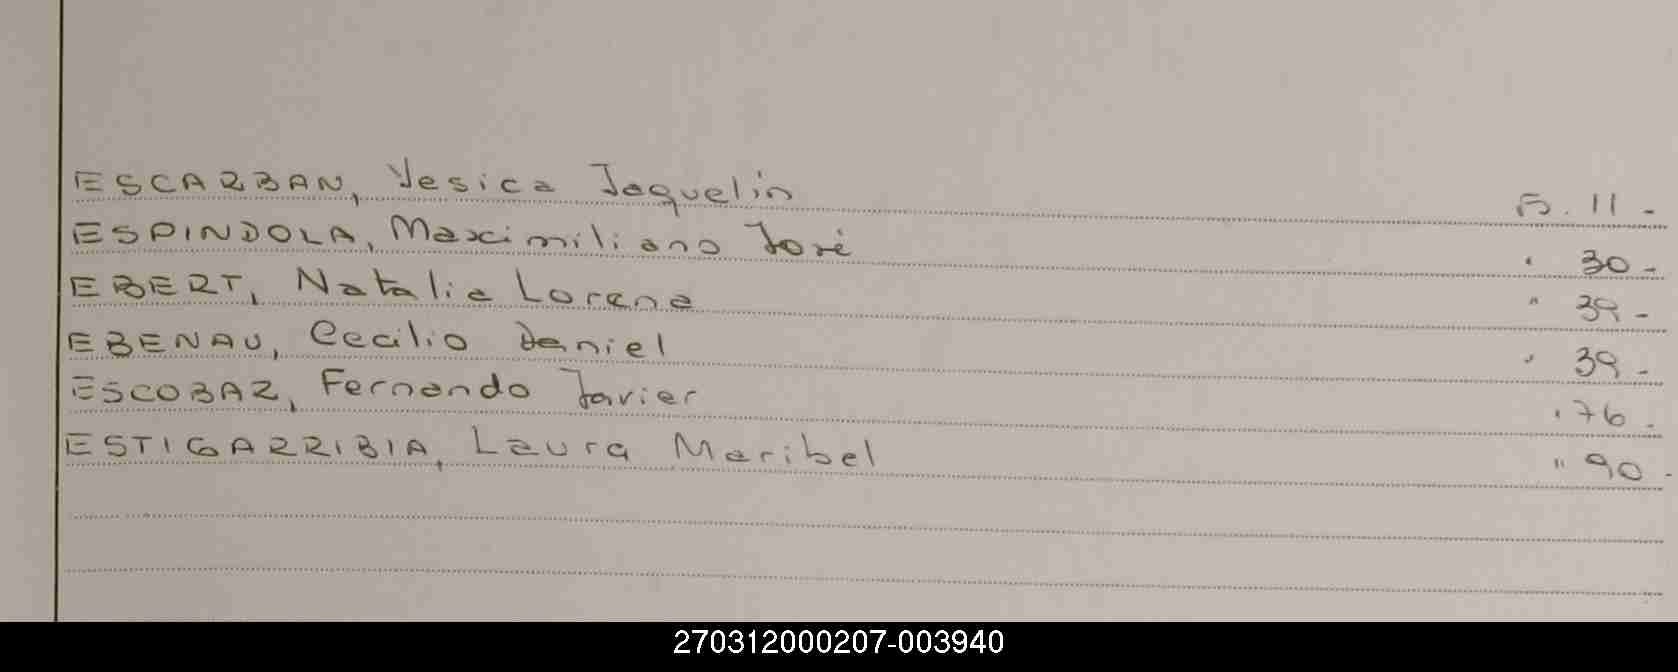 ESCARBAN, Yesica Jaquelin F. 11 -
ESPINDOLA, Maximiliano José " 30 -
EBERT, Natalia Lorena " 39 -
EBENAU, Cecilio Daniel " 39 -
ESCOBAR, Fernando Javier " 76 -
ESTIGARRIBIA, Laura Maribel " 90 -
270312000207-003940